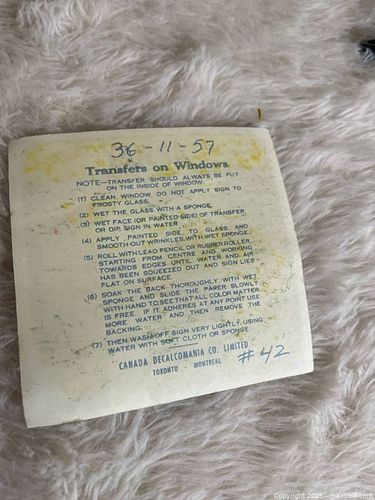 36-11-57
Transfers on Windows
NOTE—TRANSFER SHOULD ALWAYS BE PUT
ON THE INSIDE OF WINDOW.
(1) CLEAN WINDOW, DO NOT APPLY SIGN TO
FROSTY GLASS.
(2) WET THE GLASS WITH A SPONGE.
(3) WET FACE (OR PAINTED SIDE) OF TRANSFER
OR DIP SIGN IN WATER.
(4) APPLY PAINTED SIDE TO GLASS AND
SMOOTH OUT WRINKLES WITH WET SPONGE.
(5) ROLL WITH LEAD PENCIL OR RUBBER ROLLER
STARTING FROM CENTRE AND WORKING
TOWARDS EDGES UNTIL WATER AND AIR
HAS BEEN SQUEEZED OUT AND SIGN LIES
FLAT ON SURFACE.
(6) SOAK THE BACK THOROUGHLY WITH WET
SPONGE AND SLIDE THE PAPER SLOWLY
WITH HAND TO SEE THAT ALL COLOR MATTER
IS FREE. IF IT ADHERES AT ANY POINT USE
MORE WATER AND THEN REMOVE THE
BACKING.
(7) THEN WASH OFF SIGN VERY LIGHTLY, USING
WATER WITH SOFT CLOTH OR SPONGE.
CANADA DECALCOMANIA CO. LIMITED
TORONTO - MONTREAL
#42